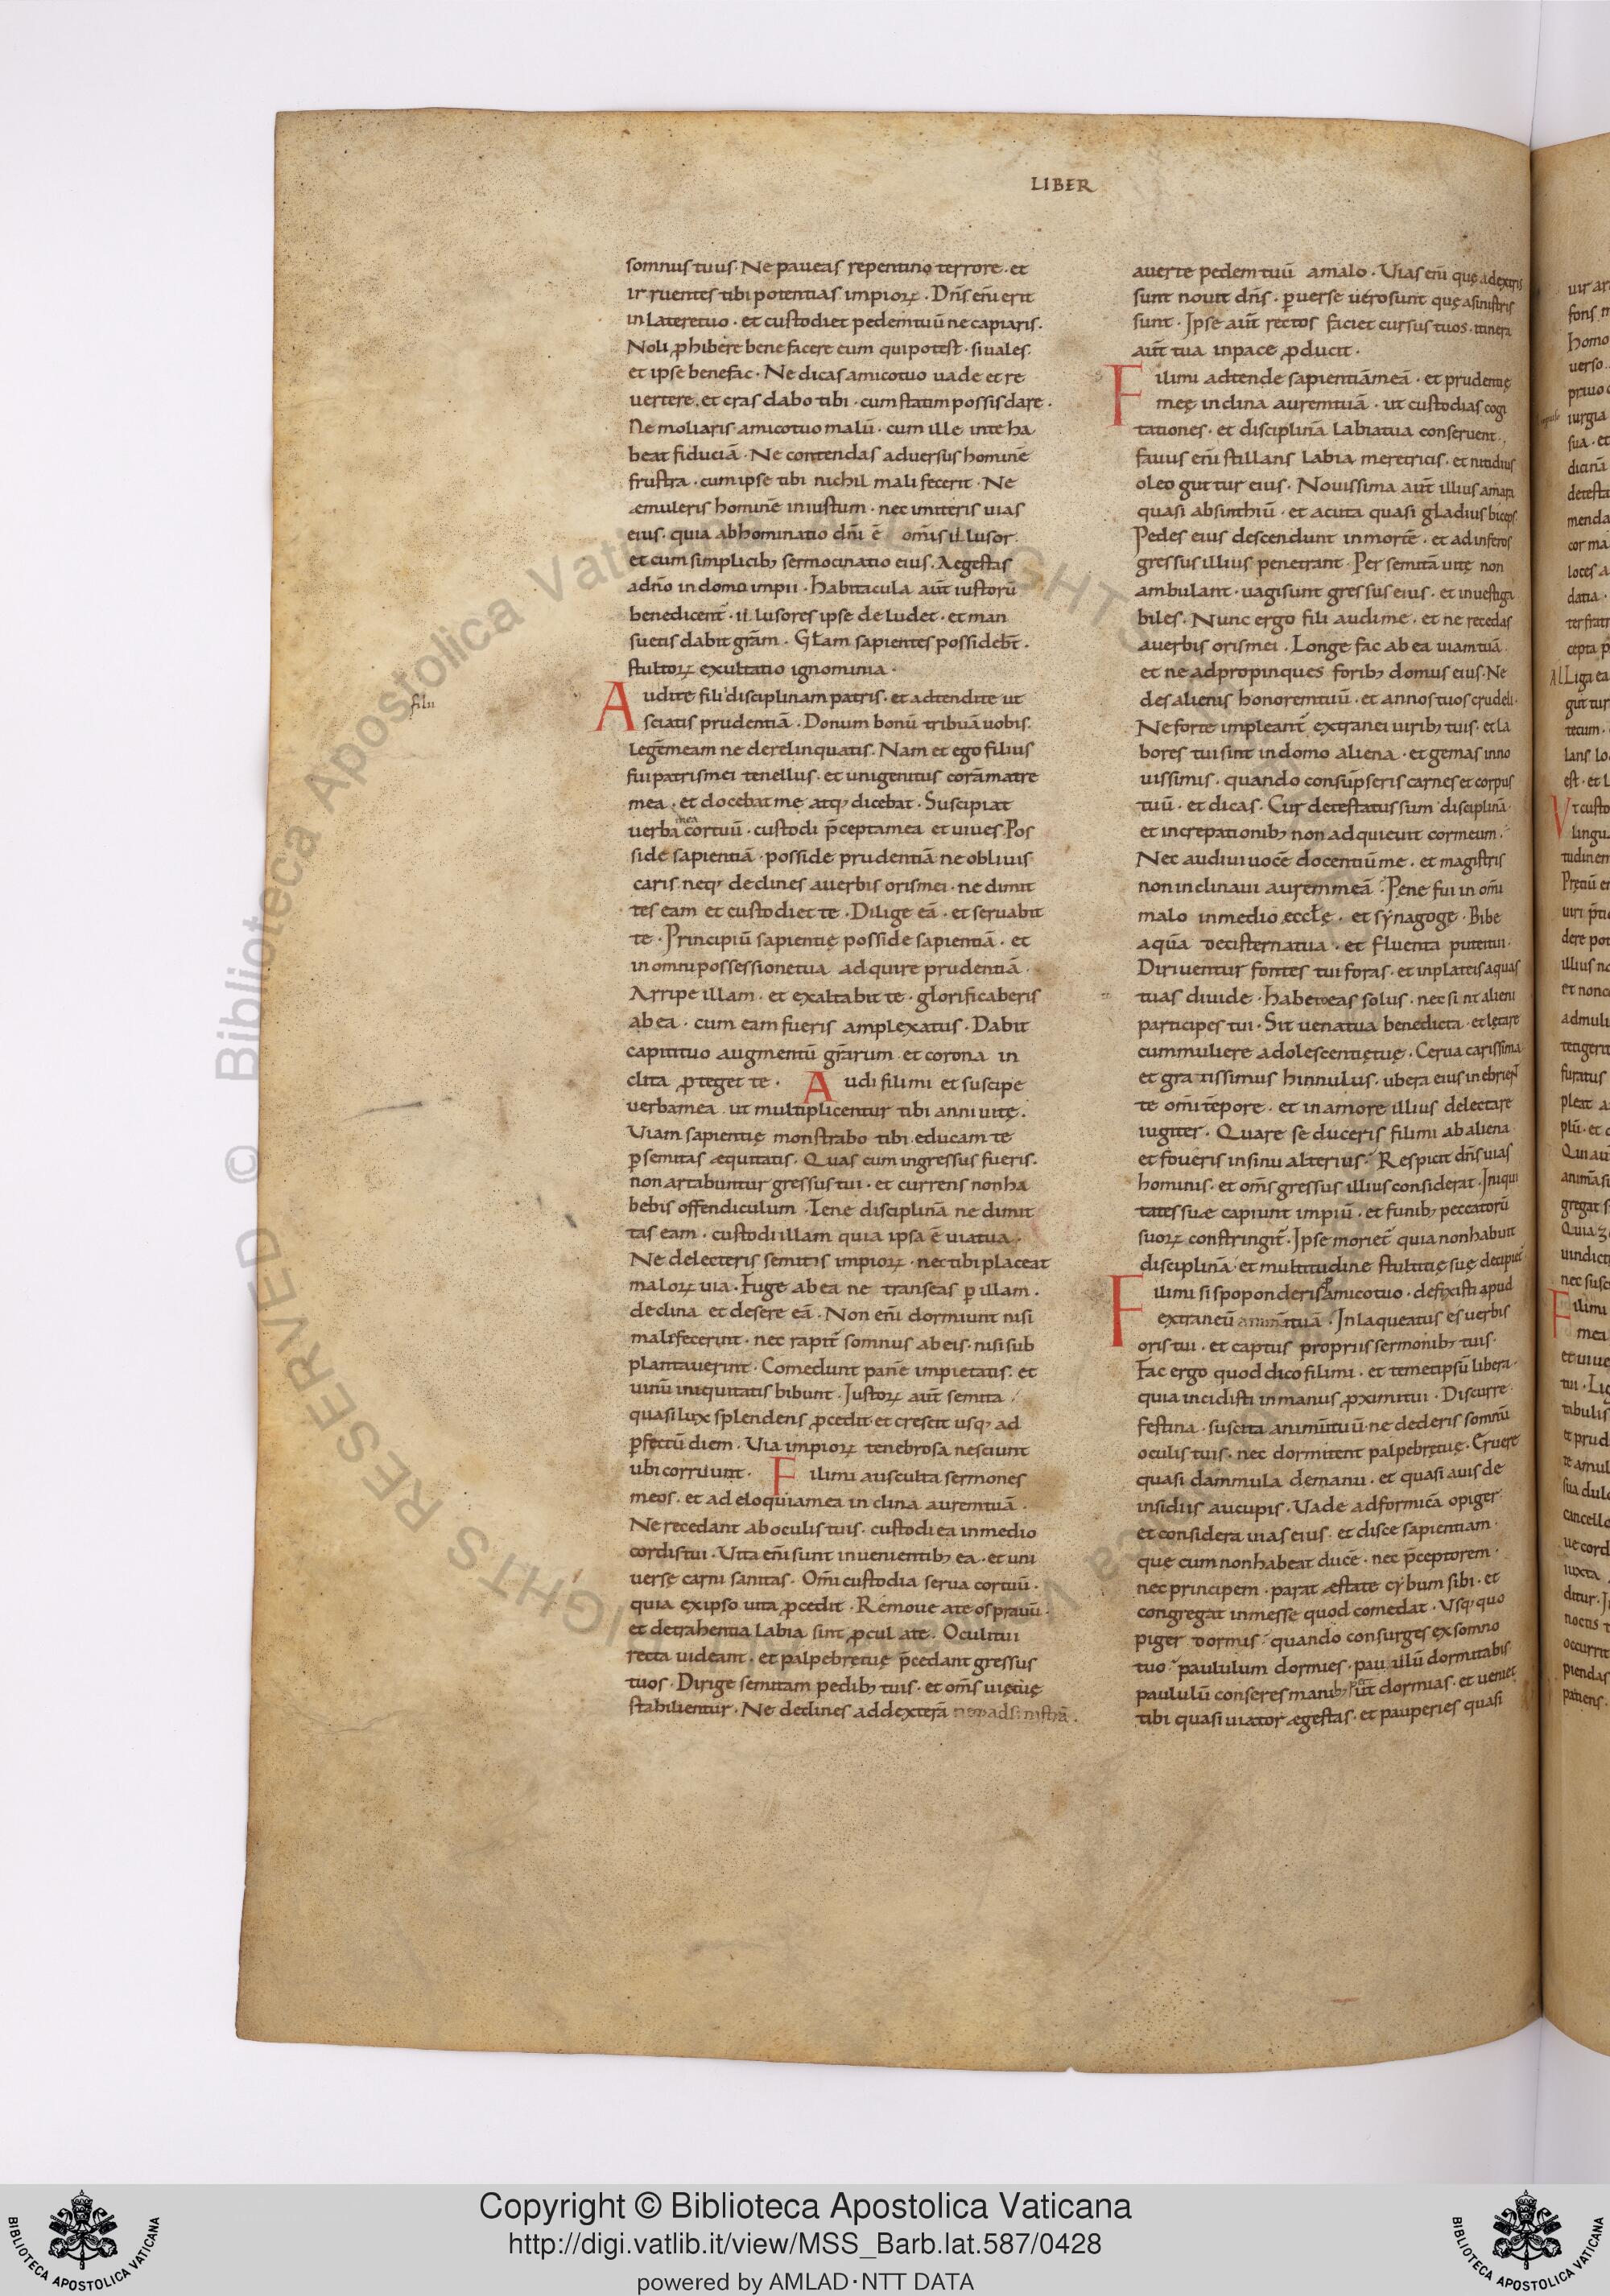 LIBER
somnus tuus. Ne paveas repentino terrore. et
irruentes tibi potentias impioꝝ. Dn̄s eni̅ erit
in latere tuo. et custodiet pedem tuū ne capiaris.
Noli ꝓhibere bene facere eum qui potest. si vales
et ipse benefac. Ne dicas amico tuo vade et re
vertere. et cras dabo tibi. cum statim possis dare.
Ne moliaris amico tuo malū. cum ille in te ha
beat fiduciā. Ne contendas adversus hominē
frustra. cum ipse tibi nichil mali fecerit. Ne
æmuleris hominē iniustum. nec imiteris vias
eius. quia abhominatio dn̄i ē om̄is illusor.
et cum simplicibꝫ sermocinatio eius. Aegestas
a dn̄o in domo impii. habitacula aut̄ iustorū
benedicent̄. illusores ipse deludet. et man
suetis dabit gr̄am. Gl̄am sapientes possideb̄t.
stultoꝝ exultatio ignominia.
Audite fili disciplinam patris. et adtendite ut
filii
sciatis prudentiā. Donum bonū tribuā vobis.
legē meam ne derelinquatis. Nam et ego filius
fui patris mei tenellus. et unigenitus corā matre
mea. et docebat me atqꝫ dicebat. Suscipiat
mea
verba cor tuū. custodi p̄cepta mea et vives. Pos
side sapientiā. posside prudentiā ne oblivis
caris neqꝫ declines a verbis oris mei. ne dimit
tes eam et custodiet te. Dilige eā. et servabit
te. Principiū sapientię posside sapientiā. et
in omni possessione tua adquire prudentiā.
Arripe illam. et exaltabit te. glorificaberis
ab ea. cum eam fueris amplexatus. Dabit
capiti tuo augmentū gr̄arum et corona in
clita ꝓteget te. Audi fili mi et suscipe
verba mea ut multiplicentur tibi anni vitę.
Viam sapientię monstrabo tibi. educam te
ꝑ semitas æquitatis. Quas cum ingressus fueris.
non artabuntur gressus tui. et currens non ha
bebis offendiculum. Tene disciplinā ne dimit
tas eam. custodi illam quia ipsa ē vita tua.
Ne delecteris semitis impioꝝ. nec tibi placeat
maloꝝ via. Fuge ab ea ne transeas ꝑ illam.
declina et desere eā. Non eni̅ dormiunt nisi
malefecerint. nec rapit̄ somnus ab eis. nisi sub
plantaverint. Comedunt panē impietatis. et
vinū iniquitatis bibunt. Iustoꝝ aut̄ semita
quasi lux splendens ꝓcedit et crescit usqꝫ ad
ꝑfectū diem. Via impioꝝ tenebrosa nesciunt
ubi corruunt. Fili mi ausculta sermones
meos. et ad eloquia mea inclina aurem tuā.
Ne recedant ab oculis tuis. custodi ea in medio
cordis tui. Vita eni̅ sunt invenientibꝫ ea. et uni
versę carni sanitas. Om̄i custodia serva cor tuū.
quia ex ipso vita ꝓcedit. Remove a te os pravū.
et detrahentia labia sint ꝓcul a te. Oculi tui
recta videant. et palpebrę tuę p̄cedant gressus
tuos. Dirige semitam pedibꝫ tuis. et om̄s vię tuę
stabilientur. Ne declines ad dexterā neq ad sinistrā.
averte pedem tuū a malo. Vias eni̅ quę a dextris
sunt novit dn̄s. ꝑverse vero sunt quę a sinistris
sunt. Ipse aut̄ rectos faciet cursus tuos. itinera
aut̄ tua in pace ꝓducit.
Fili mi adtende sapientiā meā. et prudentię
meę inclina aurem tuā. ut custodias cogi
tationes. et disciplinā labia tua conservent.
favus eni̅ stillans labia meretricis. et nitidius
oleo guttur eius. Novissima aut̄ illius amara
quasi absinthiū. et acuta quasi gladius biceps.
Pedes eius descendunt in mortē. et ad inferos
gressus illius penetrant. Per semitā vitę non
ambulant. vagi sunt gressus eius. et investiga
biles. Nunc ergo fili audi me. et ne recedas
a verbis oris mei. Longe fac ab ea viam tuā.
et ne adpropinques foribꝫ domus eius. Ne
des alienis honorem tuū. et annos tuos crudeli.
Ne forte impleant̄ extranei viribꝫ tuis. et la
bores tui sint in domo aliena. et gemas in no
vissimis. quando consūpseris carnes et corpus
tuū. et dicas. Cur detestatus sum disciplinā
et increpationibꝫ non adquievit cor meum.
Nec audivi vocē docentiū me. et magistris
non inclinavi aurem meā. Pene fui in om̄i
malo in medio eccl̄ę. et synagogę. Bibe
aquā de cisterna tua. et fluenta putei tui.
Diriventur fontes tui foras. et in plateis aquas
tuas divide. habeto eas solus. nec sint alieni
participes tui. Sit vena tua benedicta. et lętare
cum muliere adolescentię tuę. Cerva carissima
et gratissimus hinnulus. ubera eius inebrient
te om̄i tēpore. et in amore illius delectare
iugiter. Quare seduceris fili mi ab aliena
et foveris in sinu alterius. Respicit dn̄s vias
hominis. et om̄s gressus illius considerat. Iniqui
tates suæ capiunt impiū. et funibꝫ peccatorū
suoꝝ constringit̄. Ipse moriet̄ quia non habuit
disciplinā. et multitudine stultitię suę decipiet̄
Fili mi si spoponderis ꝓ amico tuo. defixisti apud
extraneū animā tuā. Inlaqueatus es verbis
oris tui. et captus propriis sermonibꝫ tuis.
Fac ergo quod dico fili mi. et temetipsū libera.
quia incidisti in manus ꝓximi tui. Discurre
festina. suscita amicū tuū. ne dederis somnū
oculis tuis. nec dormitent palpebrę tuę. Eruere
quasi dammula de manu. et quasi avis de
insidiis aucupis. Vade ad formicā o piger
et considera vias eius. et disce sapientiam.
quę cum non habeat ducē. nec p̄ceptorem.
nec principem. parat æstate cybum sibi. et
congregat in messe quod comedat. Usqꝫ quo
piger dormis. quando consurges ex somno
tuo. paululum dormies. paululū dormitabis
paululū conseres manibꝫ ut dormias. et veniet
tibi quasi viator ægestas. et pauperies quasi
Copyright © Biblioteca Apostolica Vaticana
http://digi.vatlib.it/view/MSS_Barb.lat.587/0428
powered by AMLAD·NTT DATA